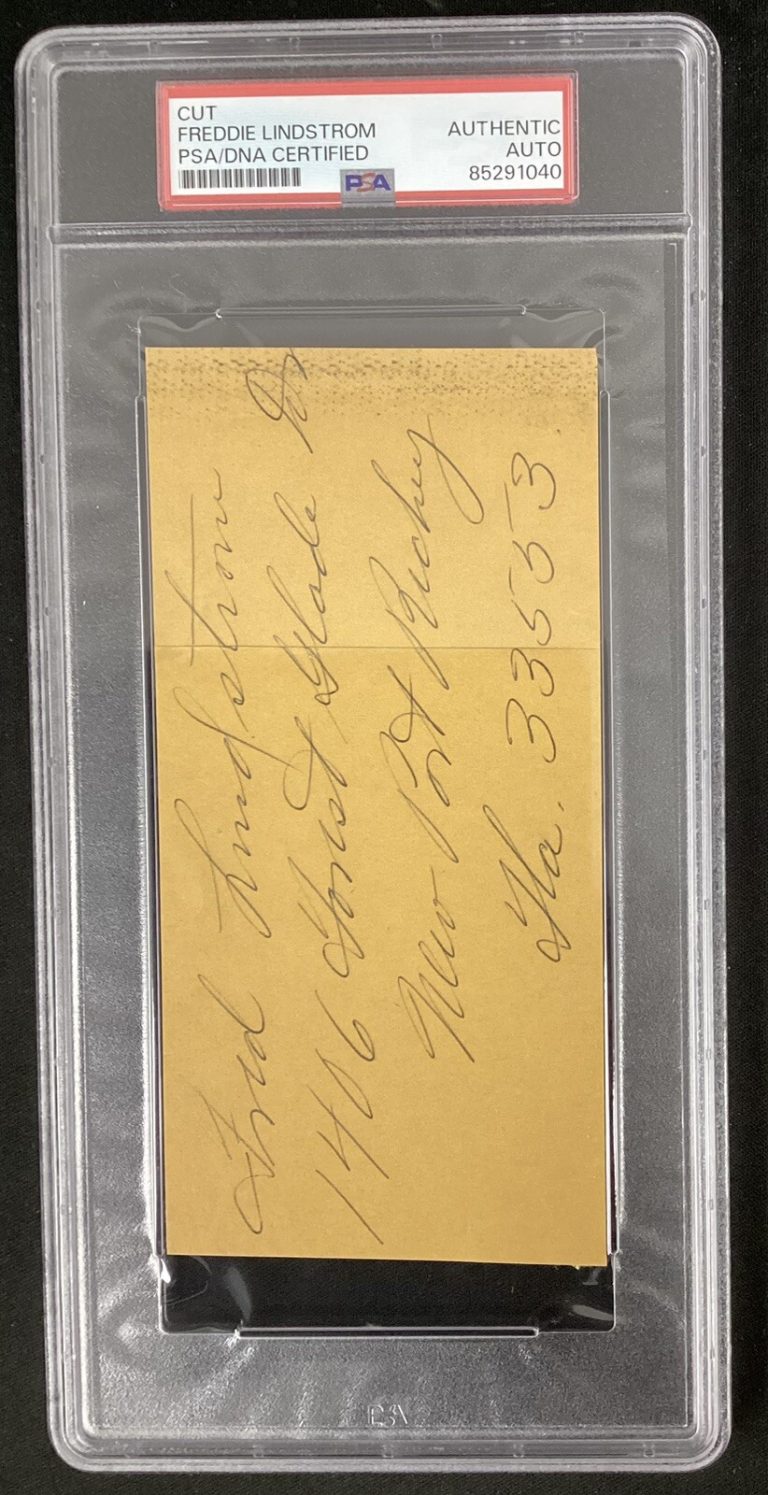 CUT
FREDDIE LINDSTROM
PSA/DNA CERTIFIED
AUTHENTIC
AUTO
85291040
PSA
Fred Lindstrom
1406 Forest Glade Dr
New Port Richey
Fla. 33553.
PSA